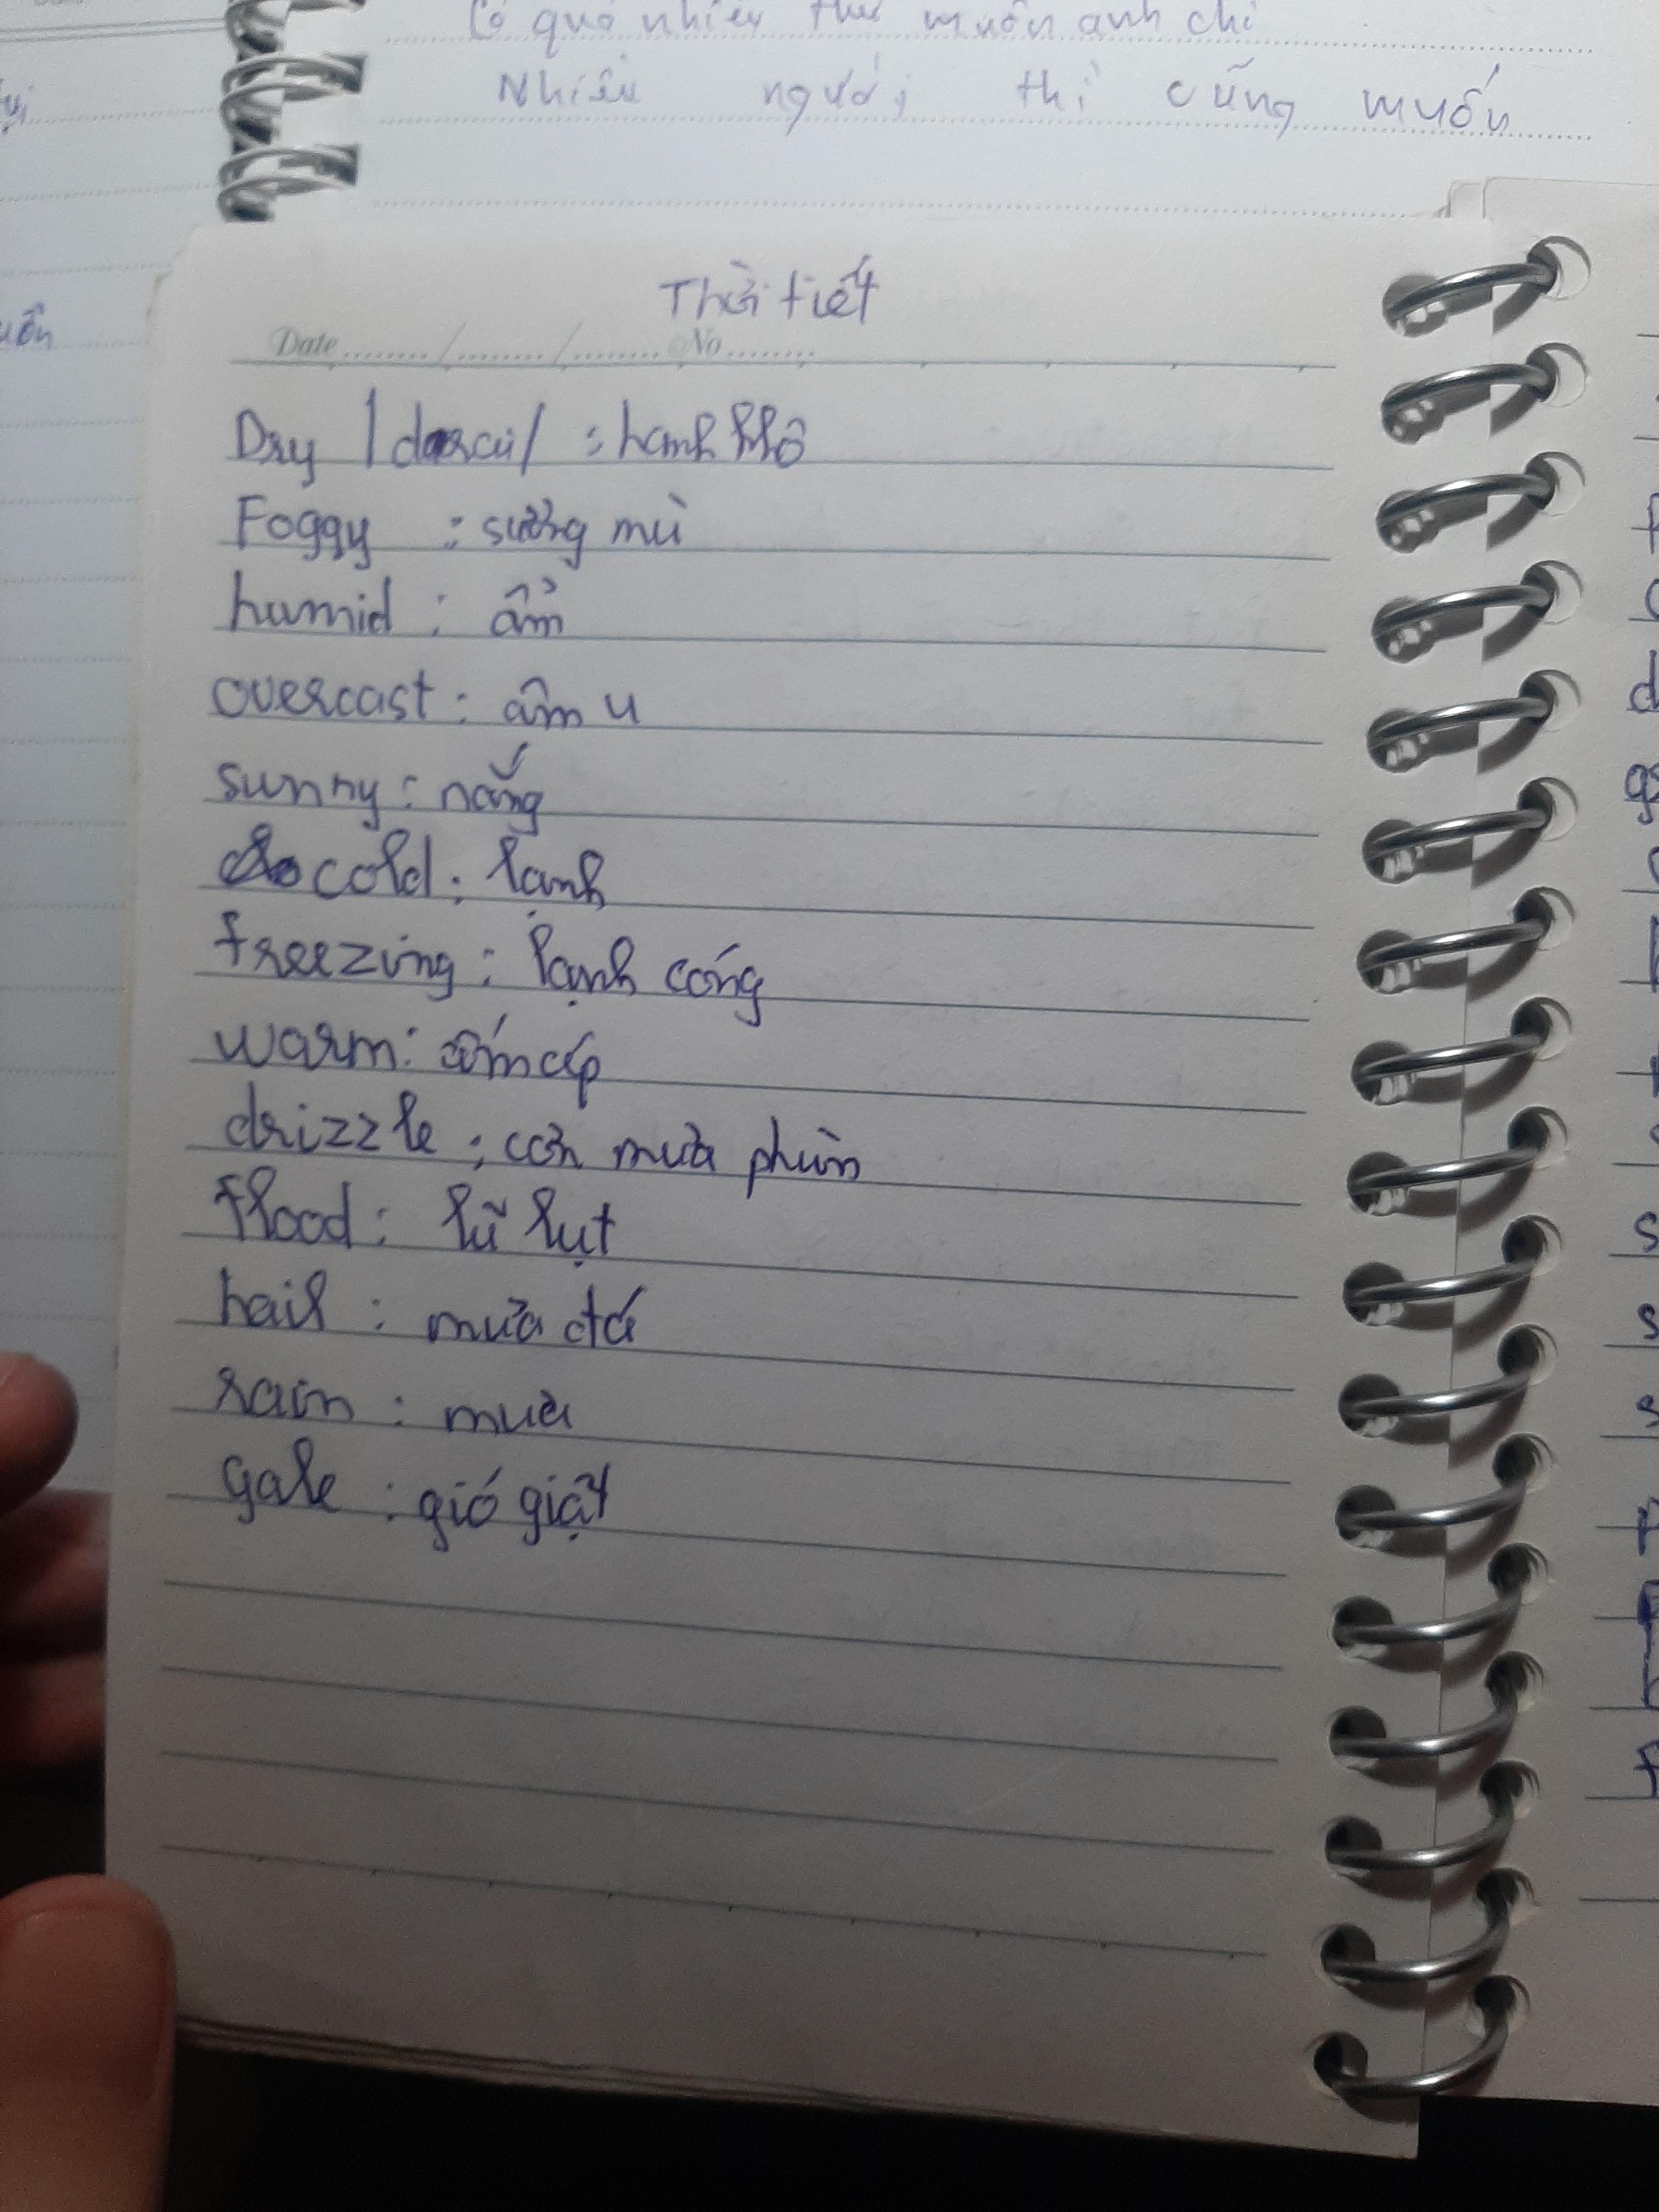 Có quá nhiều thứ muốn anh chỉ
Nhiều người thì cũng muốn
Thời tiết
Date ......../......../........ No ........
Dry /drai/ : hanh khô
Foggy : sương mù
humid : ẩm
overcast : âm u
sunny : nắng
cold : lạnh
freezing : lạnh cóng
warm : ấm áp
drizzle : cơn mưa phùn
flood : lũ lụt
hail : mưa đá
rain : mưa
gale : gió giật